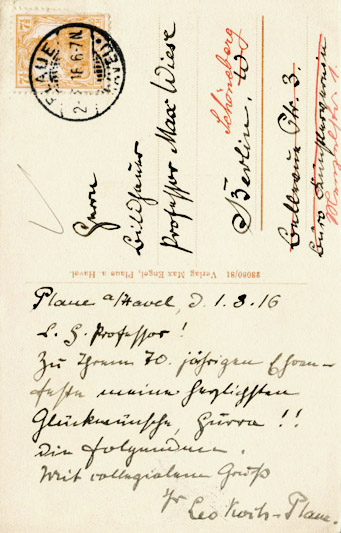 PLAUE
(HAVEL)
7½
Herrn
Bildhauer
Professor Max Wiese
Schöneberg
Berlin. W
Bellevue Str. 3.
Büro Künstlerverein
23080/81 Verlag Max Engel, Plaue a. Havel.
Plaue a/Havel, d. 1.3.16
L. H. Professor!
Zu Ihrem 70. jährigen Ehren-
feste meine herzlichsten
Glückwünsche, Hurra!!
die folgenden.
Mit collegialem Gruß
Ihr
Leo - Plaue.